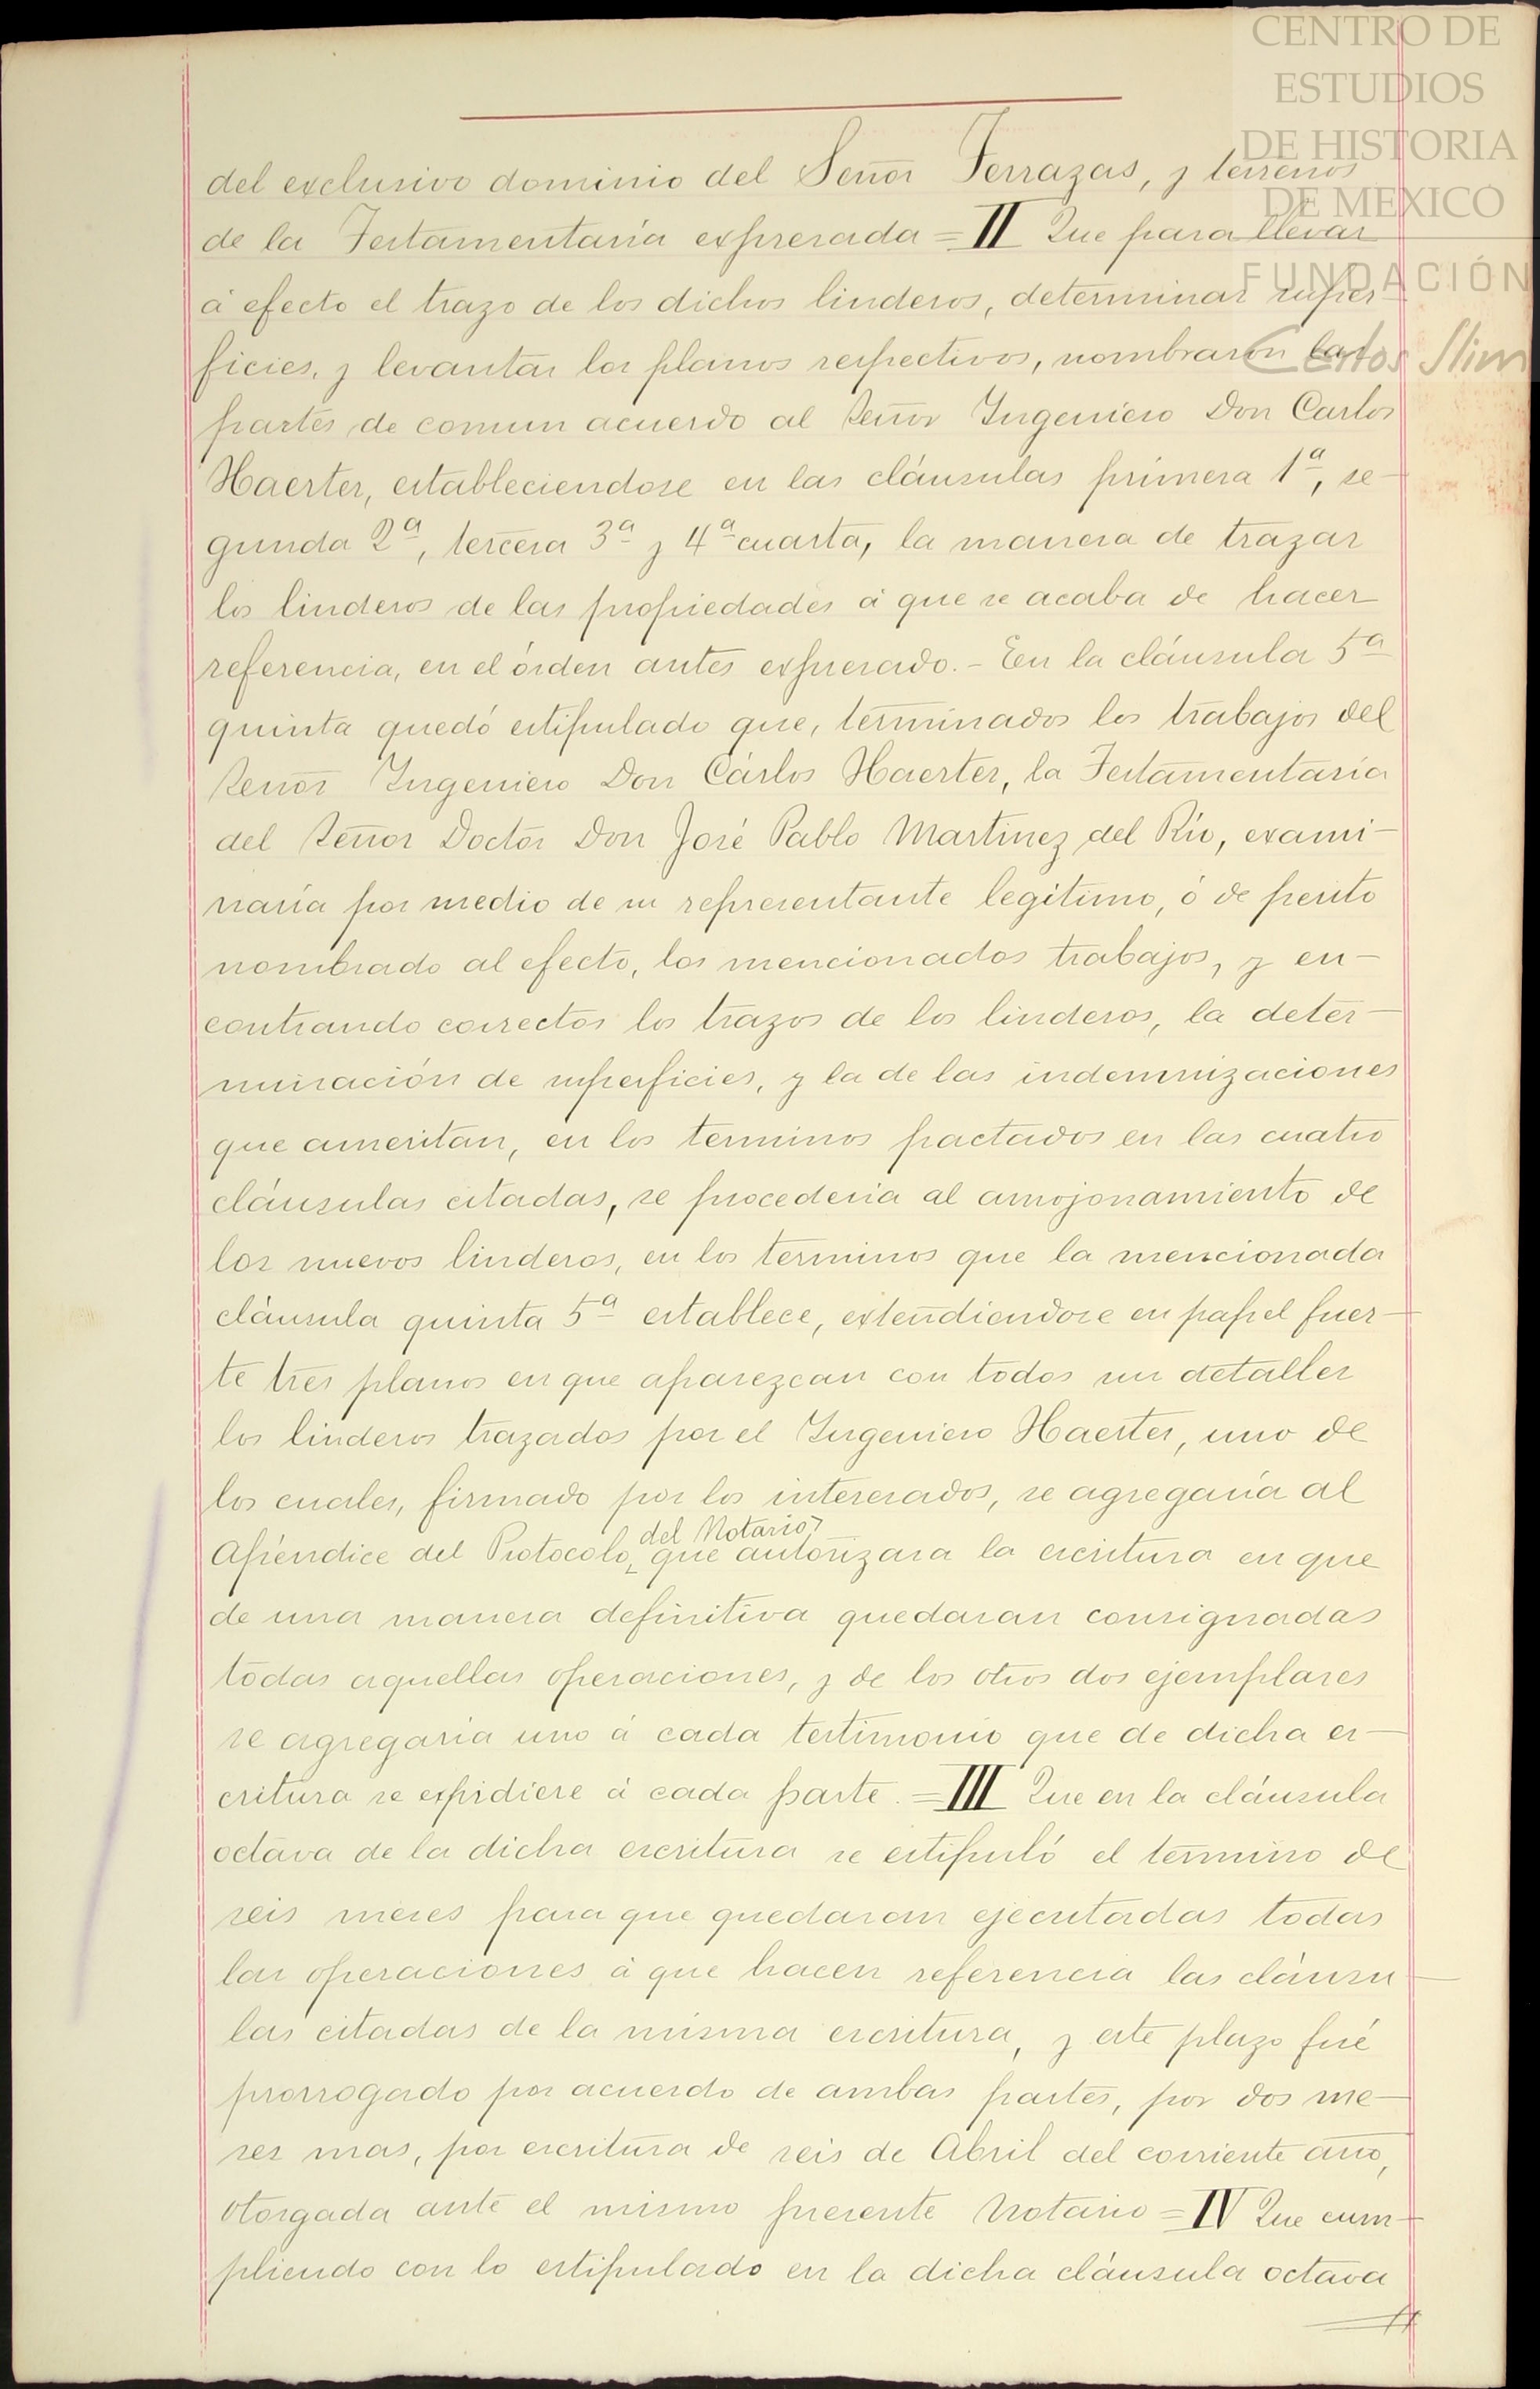 CENTRO DE
ESTUDIOS
DE HISTORIA
DE MÉXICO
FUNDACIÓN
Carlos Slim
del exclusivo dominio del Señor Terrazas, y terrenos
de la Testamentaría expresada = II Que para llevar
á efecto el trazo de los dichos linderos, determinar super-
ficies, y levantar los planos respectivos, nombraron las
partes de comun acuerdo al Señor Ingeniero Don Carlos
Haerter, estableciendose en las cláusulas primera 1ª, se-
gunda 2ª, tercera 3ª y 4ª cuarta, la manera de trazar
los linderos de las propiedades á que se acaba de hacer
referencia, en el órden antes expresado.- En la cláusula 5ª
quinta quedó estipulado que, terminados los trabajos del
Señor Ingeniero Don Cárlos Haerter, la Testamentaría
del Señor Doctor Don José Pablo Martinez del Río, exami-
naría por medio de su representante legítimo, ó de perito
nombrado al efecto, los mencionados trabajos, y en-
contrando correctos los trazos de los linderos, la deter-
minación de superficies, y la de las indemnizaciones
que ameritan, en los terminos pactados en las cuatro
cláusulas citadas, se procederia al amojonamiento de
los nuevos linderos, en los terminos que la mencionada
cláusula quinta 5ª establece, extendiendose en papel fuer-
te tres planos en que aparezcan con todos sus detalles
los linderos trazados por el Ingeniero Haerter, uno de
los cuales, firmado por los interesados, se agregaría al
del Notario
Apéndice del Protocolo, que autorizara la escritura en que
de una manera definitiva quedaran consignadas
todas aquellas operaciones, y de los otros dos ejemplares
se agregaría uno á cada testimonio que de dicha es-
critura se expidiere á cada parte. = III Que en la cláusula
octava de la dicha escritura se estipuló el termino de
seis meses para que quedaran ejecutadas todas
las operaciones á que hacen referencia las cláusu-
las citadas de la misma escritura, y este plazo fué
prorrogado por acuerdo de ambas partes, por dos me-
ses mas, por escritura de seis de Abril del corriente año,
otorgada ante el mismo presente Notario = IV Que cum-
pliendo con lo estipulado en la dicha cláusula octava